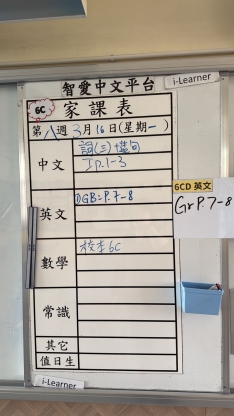 智愛中文平台
i-Learner
6C
家課表
第八週 3月16日(星期一)
中文
詞(三)造句
工P.1-3
英文
①GB:P.7-8
6CD 英文
Gr P.7-8
數學
校本6C
常識
其它
值日生
i-Learner